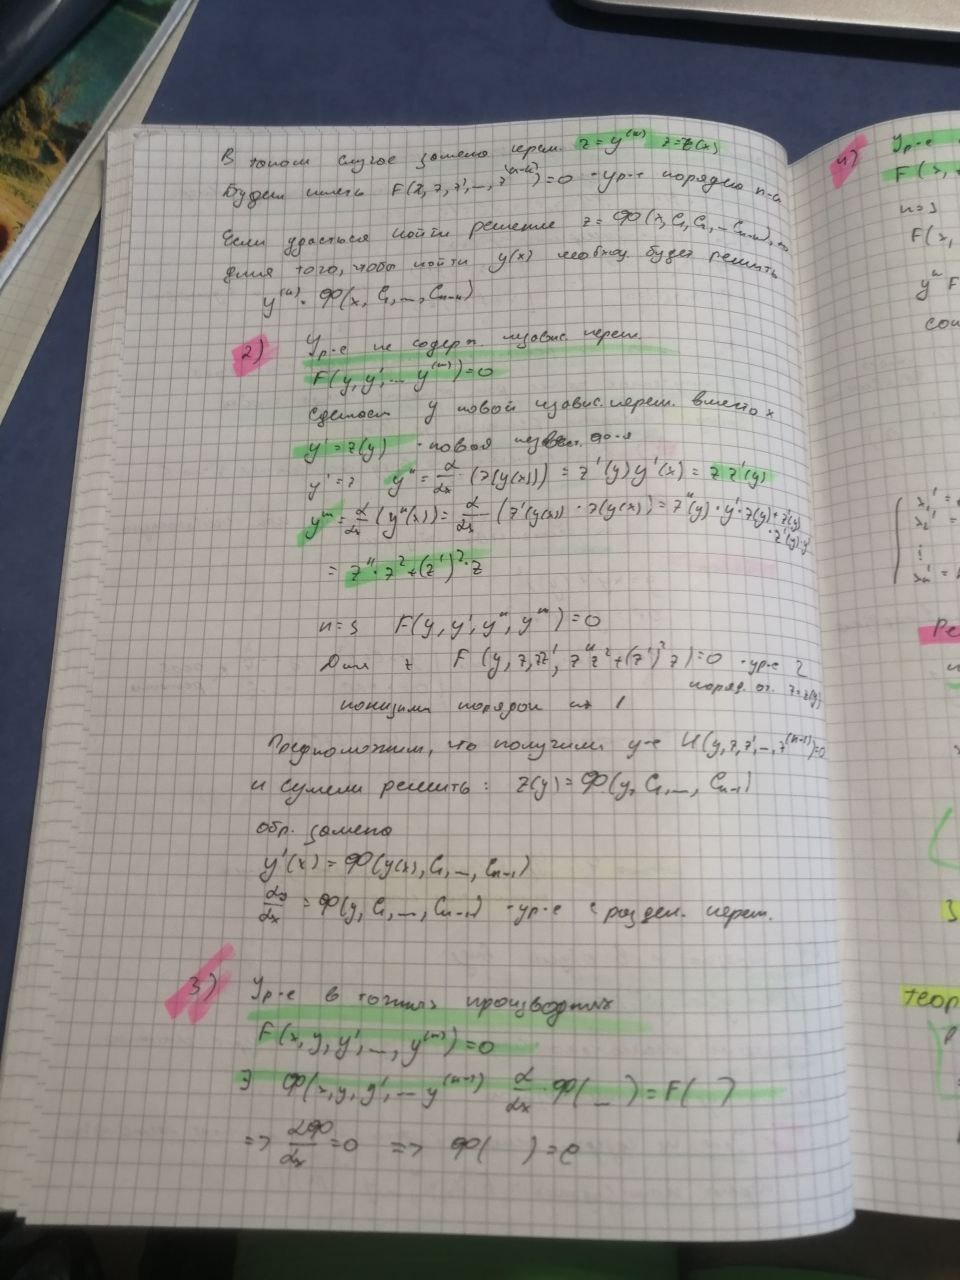 В таком случае замена перем. z = y^(k) z = z(x)
Будем иметь F(x, z, z', ..., z^(n-k)) = 0 - ур-е порядка n-k
Если удастся найти решение z = Φ(x, C₁, C₂, ... C_(n-k)), то
для того, чтобы найти y(x) необход. будет решить
y^(k) = Φ(x, C₁, ..., C_(n-k))
2) Ур-е не содерж. независ. перем.
F(y, y', ... y^(n)) = 0
Сделаем y новой независ. перем. вместо x
y' = z(y) - новая неизвест. ф-я
y' = z y'' = d/dx (z(y(x))) = z'(y) y'(x) = z z'(y)
y''' = d/dx (y''(x)) = d/dx (z'(y(x)) · z(y(x))) = z''(y) · y' · z(y) + z'(y)
· z'(y) · y'
= z'' · z² + (z')² · z
n = 3 F(y, y', y'', y''') = 0
Для z F (y, z, zz', z''z² + (z')² z) = 0 - ур-е 2
поряд. от. z = z(y)
понизили порядок на 1
Предположим, что получили у-е H(y, z, z', ..., z^(n-1)) = 0
и сумели решить: z(y) = Φ(y, C₁, ..., C_(n-1))
обр. замена
y'(x) = Φ(y(x), C₁, ..., C_(n-1))
dy/dx = Φ(y, C₁, ..., C_(n-1)) - ур-е с раздел. перем.
3) Ур-е в точных производных
F(x, y, y', ..., y^(n)) = 0
∃ Φ(x, y, y', ... y^(n-1)) d/dx · Φ( ... ) = F( )
=> dΦ/dx = 0 => Φ( ) = C
4) Ур-е
F(x,
n = 3
F(x,
y'' F
x₁' =
x₂' =
⋮
xₙ' =
Ре
теор